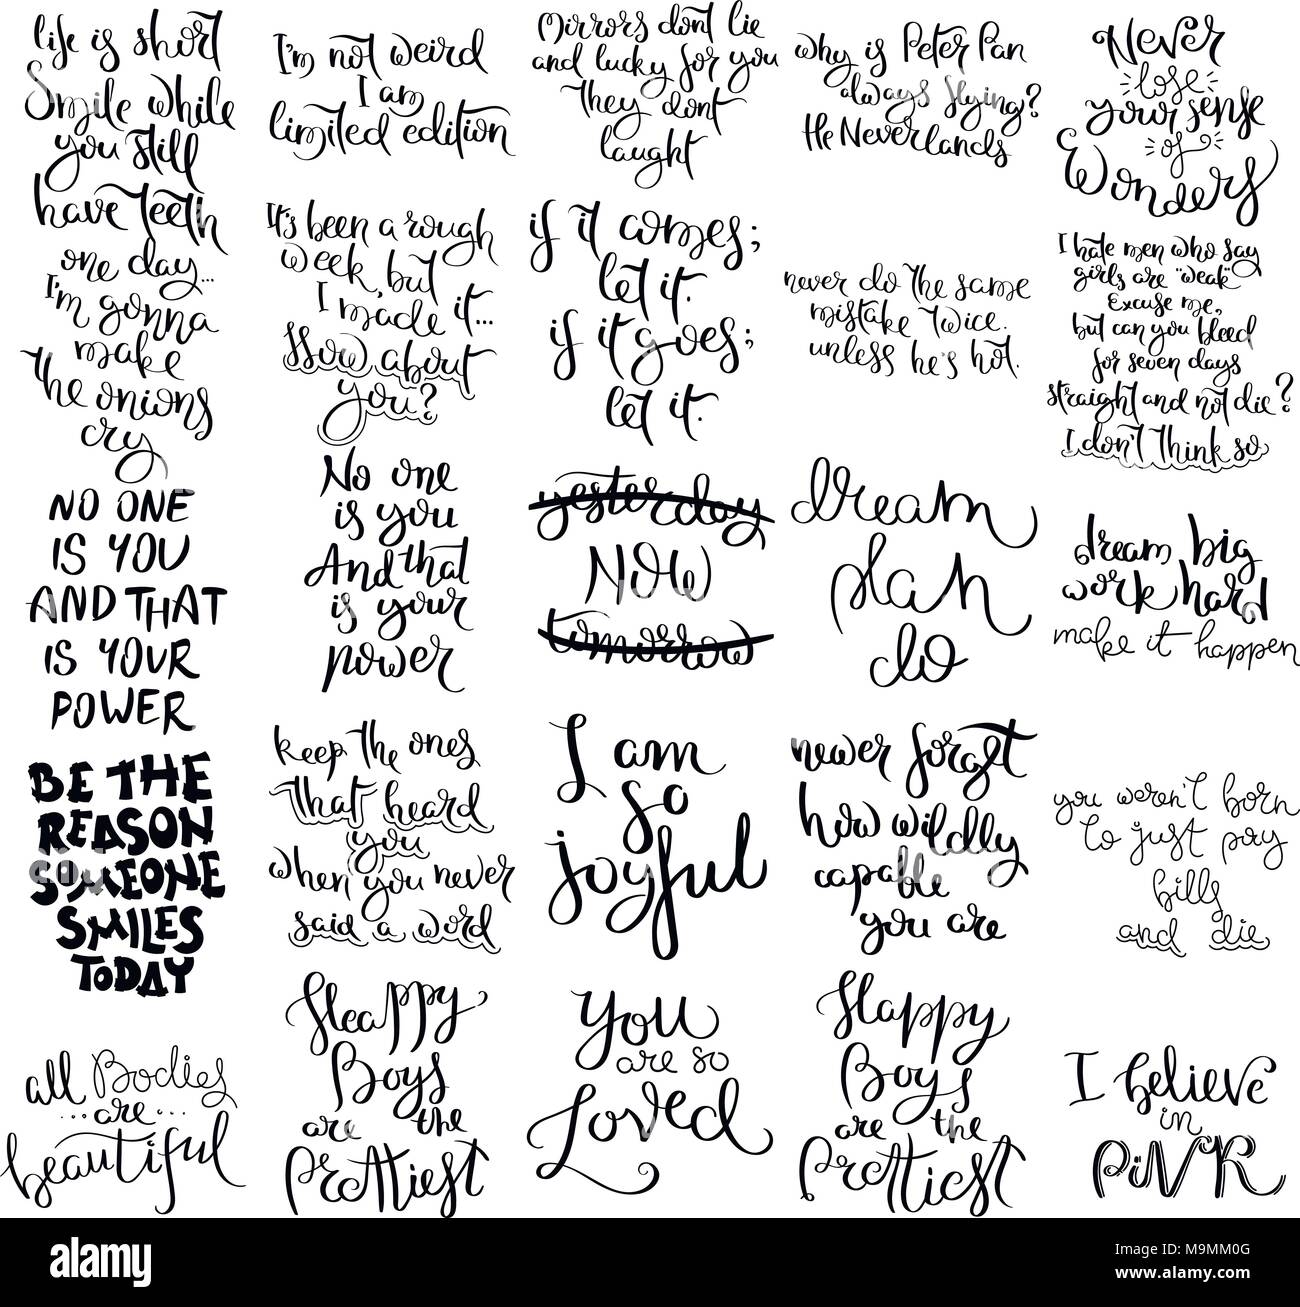 life is short
Smile while
you still
have teeth
one day...
I'm gonna
make
the onions
cry
NO ONE
IS YOU
AND THAT
IS YOUR
POWER
BE THE
REASON
SOMEONE
SMILES
TODAY
all Bodies
...are...
beautiful
I'm not weird
I am
limited edition
It's been a rough
week, but
I made it...
How about
you?
No one
is you
And that
is your
power
keep the ones
that heard
you
when you never
said a word
Happy
Boys
are the
Prettiest
Mirrors dont lie
and lucky for you
they dont
laught
if it comes;
let it.
if it goes;
let it.
yesterday
NOW
tomorrow
I am
so
joyful
You
are so
Loved
why is Peter Pan
always flying?
He Neverlands
never do the same
mistake twice.
unless he's hot.
dream
plan
do
never forget
how wildly
capable
you are
Happy
Boys
are the
Prettiest
Never
lose
your sense
of
Wonders
I hate men who say
girls are "weak"
Excuse me,
but can you bleed
for seven days
straight and not die?
I don't think so
dream big
work hard
make it happen
you weren't born
to just pay
bills
and die
I believe
in
PiNK
alamy
Image ID: M9MM0G
www.alamy.com